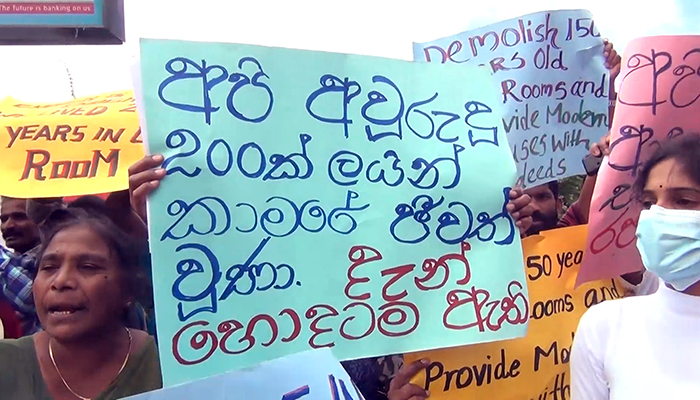 The future is banking on us
YEARS IN
ROOM
අපි අවුරුදු
200ක් ලයින්
කාමරේ ජීවත්
වුණා. දැන්
හොදටම ඇති.
Demolish 150
Old
Rooms and
vide Modern
ses With
deeds
අපි
50 yea
ooms and
Provide Mod
with